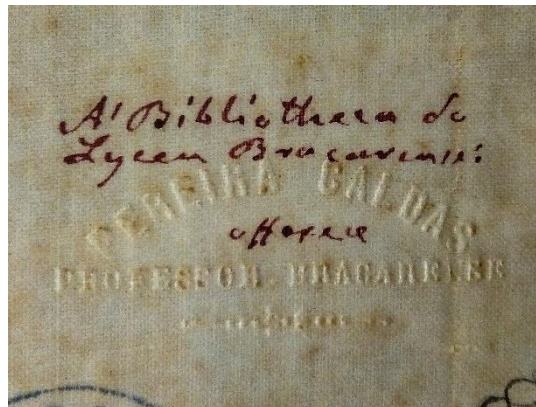 A' Bibliotheca do
Lyceu Bracarense:
PEREIRA CALDAS
offerece
PROFESSOR BRACARENSE